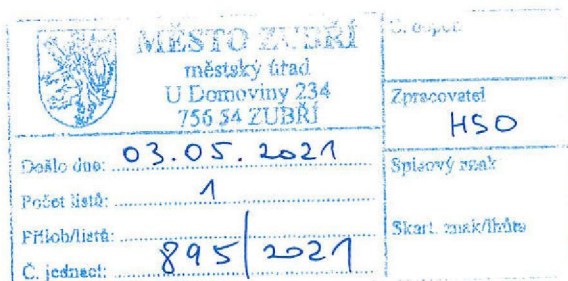 MĚSTO ZUBŘÍ
městský úřad
U Domoviny 234
756 54 ZUBŘÍ
Zpracovatel
HSO
Došlo dne: 03.05.2021
Spisový znak
Počet listů: 1
Příloh/listů:
Skart. znak/lhůta
Č. jednací: 895/2021